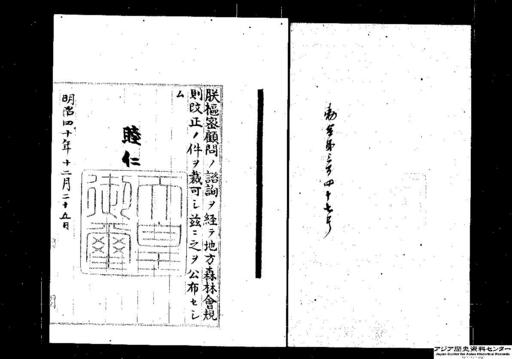 勅令第三百四十七号
朕枢密顧問ノ諮詢ヲ経テ地方森林會規
則改正ノ件ヲ裁可シ茲ニ之ヲ公布セシ
ム
睦仁
天皇御璽
明治四十年十二月二十五日
アジア歴史資料センター
Japan Center for Asian Historical Records